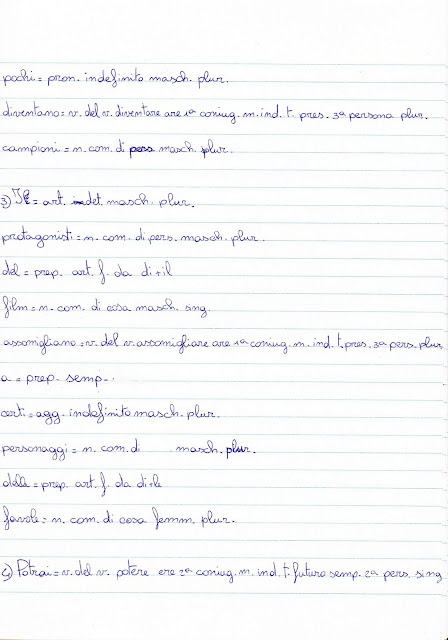 pochi = pron. indefinito masch. plur.
diventano = v. del v. diventare are 1ª coniug. m. ind. t. pres. 3ª persona plur.
campioni = n. com. di pers masch. plur.
3) = art. det. masch. plur.
protagonisti = n. com. di pers. masch. plur.
del = prep. art. f. da di + il
film = n. com. di cosa masch. sing.
assomigliano = v. del v. assomigliare are 1ª coniug. m. ind. t. pres. 3ª pers. plur
a = prep. semp.
certi = agg. indefinito masch. plur.
personaggi = n. com. di masch. plur.
delle = prep. art. f. da di + le
favole = n. com. di cosa femm. plur.
4) Potrai = v. del v. potere ere 2ª coniug. m. ind. t. futuro semp. 2ª pers. sing